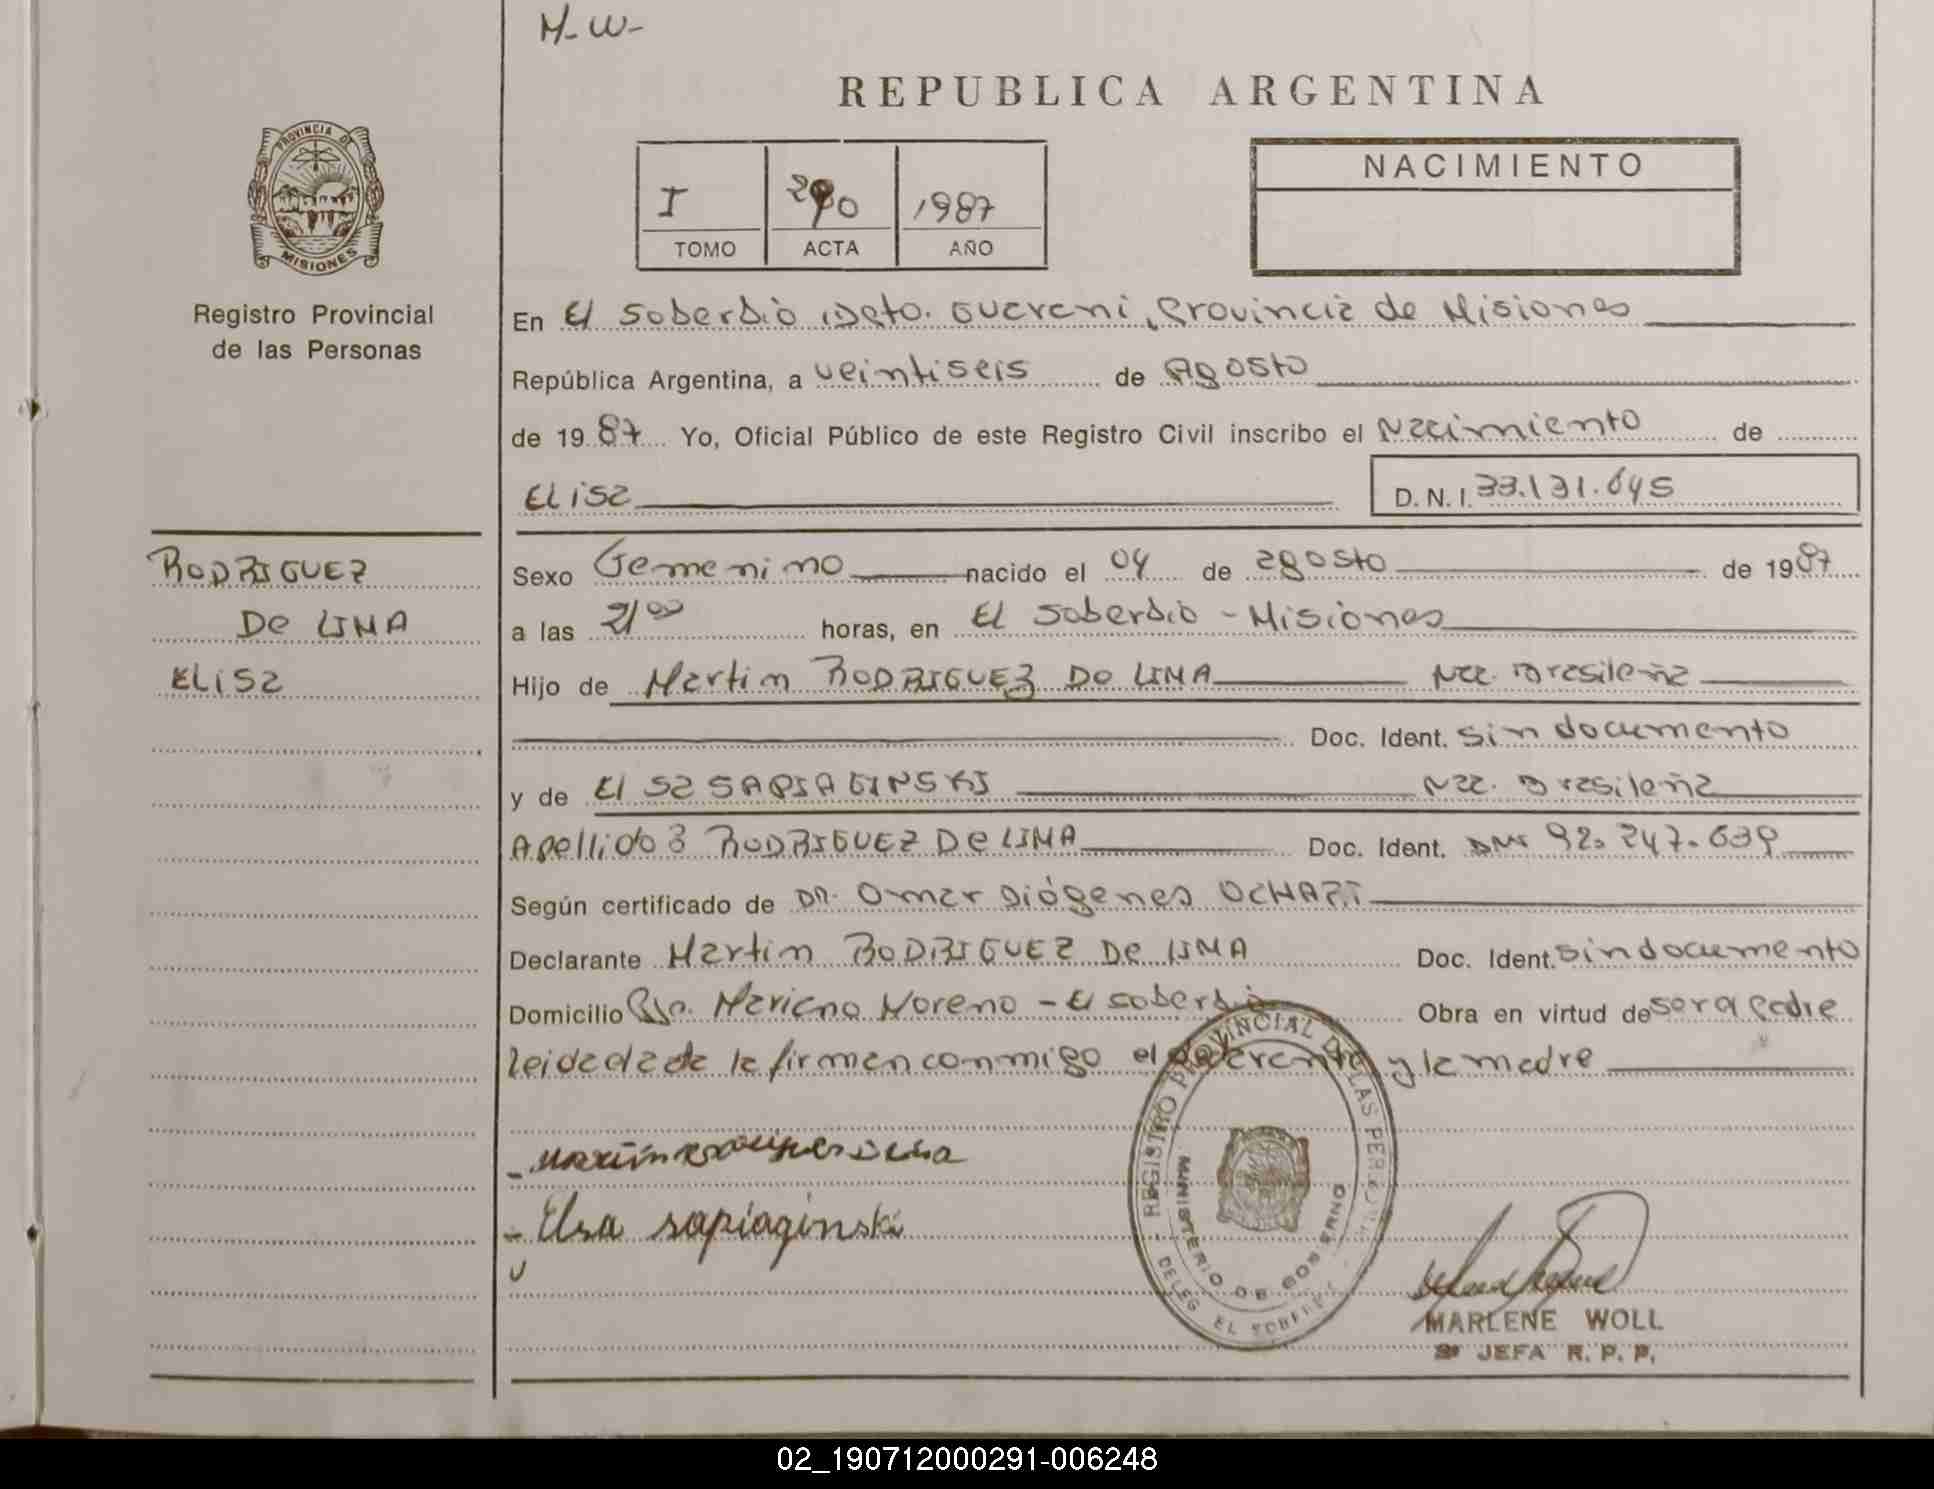 M-W-
REPUBLICA ARGENTINA
PROVINCIA DE
MISIONES
Registro Provincial
de las Personas
I 290 1987
TOMO ACTA AÑO
NACIMIENTO
En El Soberbio, Dpto. Guarani, Provincia de Misiones
República Argentina, a veintiseis de Agosto
de 1987 Yo, Oficial Público de este Registro Civil inscribo el Nacimiento de
Elisa D.N.I. 33.131.645
RODRIGUEZ
De LIMA
Elisa
Sexo Femenino nacido el 04 de agosto de 1987
a las 21 00 horas, en El Soberbio - Misiones
Hijo de Martin RODRIGUEZ De LIMA Nac. Brasileña
Doc. Ident. sin documento
y de Elsa SAPIAGINSKI Nac. Brasileña
Apellido RODRIGUEZ De LIMA Doc. Ident. DNI 92.247.639
Según certificado de DR. Omar Diógenes OCHART
Declarante Martin RODRIGUEZ De LIMA Doc. Ident. sin documento
Domicilio Bo. Mariano Moreno - El Soberbio Obra en virtud de ser el padre
leida el acta la firman conmigo el declarante y la madre
- Elsa sapiaginski
REGISTRO PROVINCIAL DE LAS PERSONAS
MINISTERIO DE GOBIERNO
DELEG. EL SOBERBIO
MARLENE WOLL
JEFA R. P. P.
02_190712000291-006248